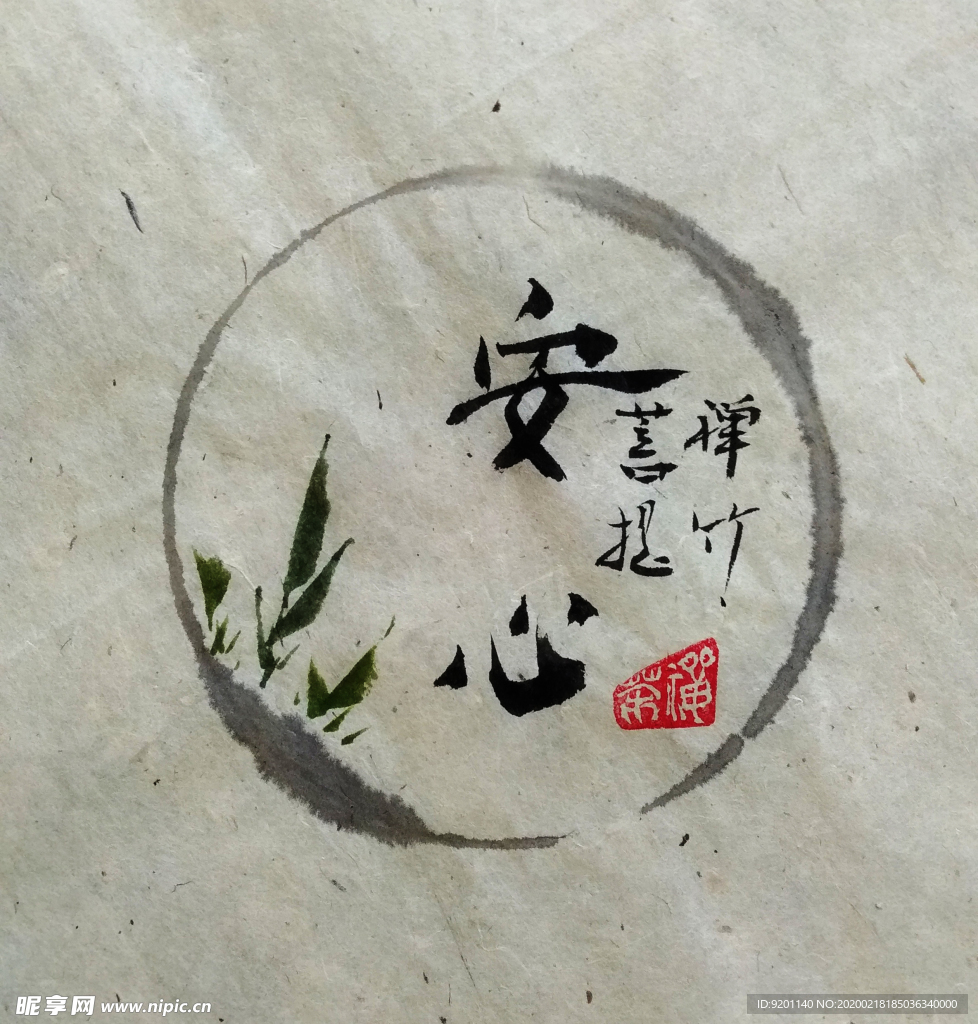 安心
禅竹
菩提
昵享网 www.nipic.cn
ID:9201140 NO:20200218185036340000